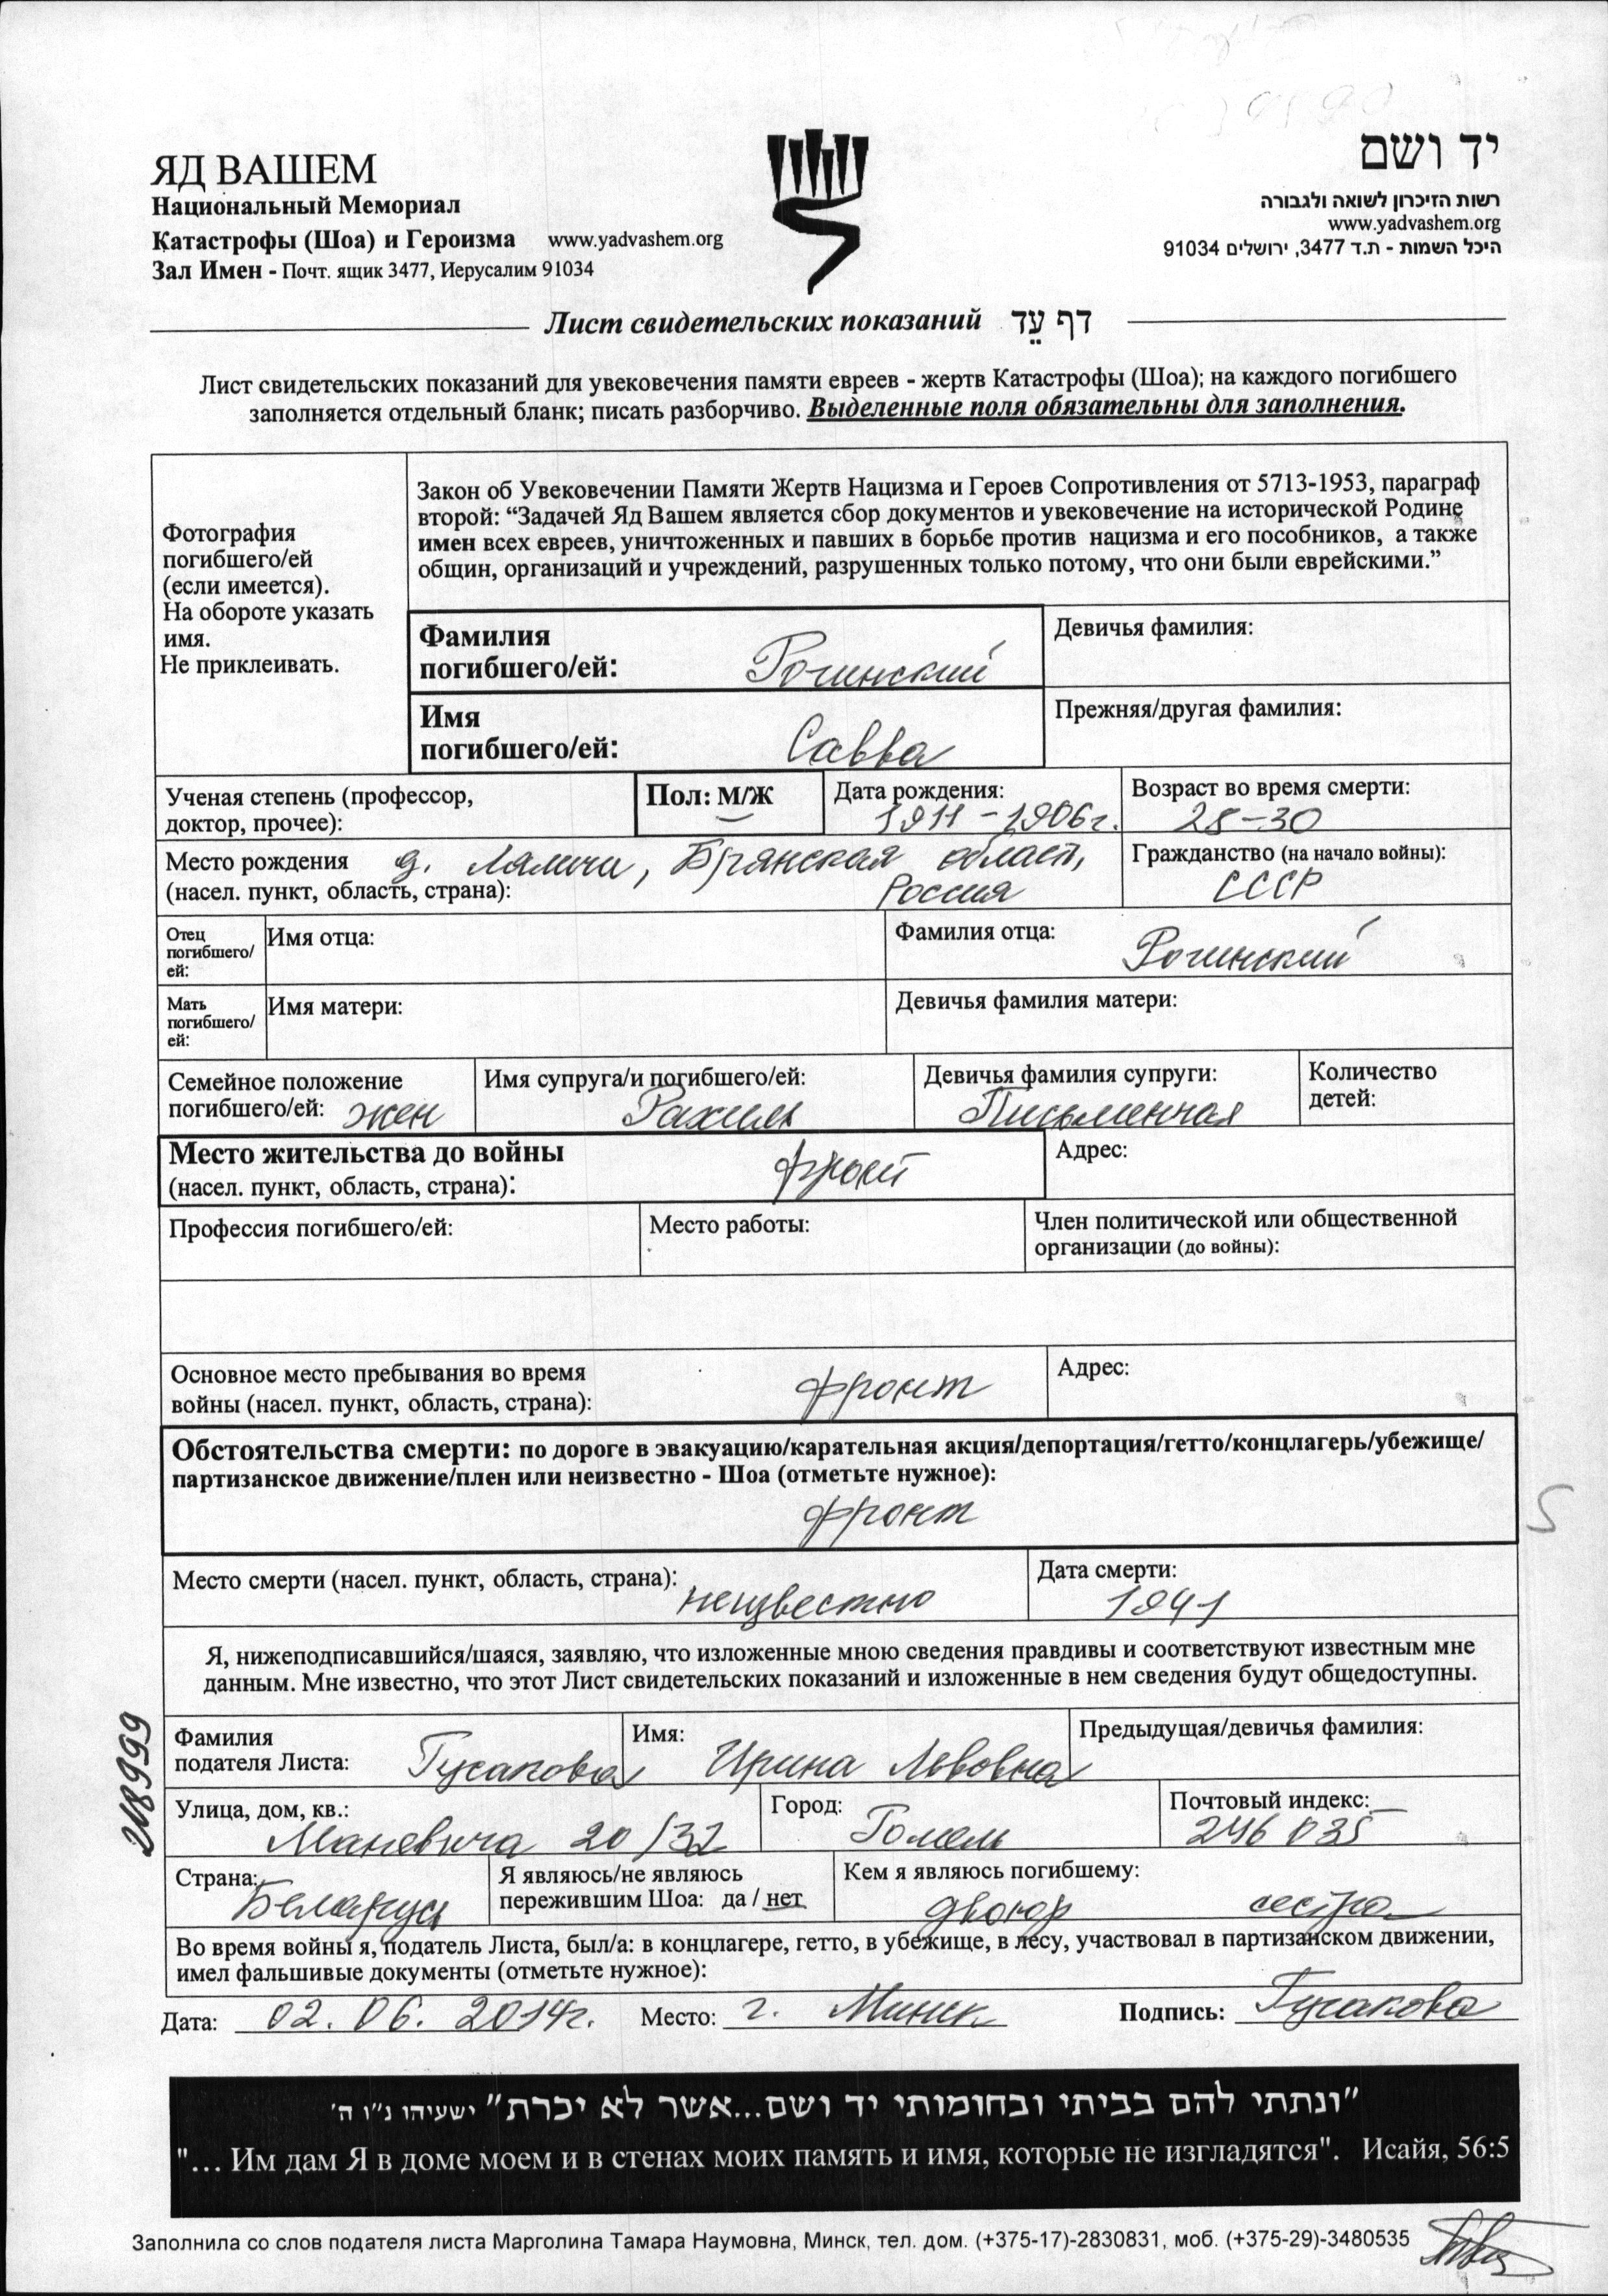 ЯД ВАШЕМ
Национальный Мемориал
Катастрофы (Шоа) и Героизма www.yadvashem.org
Зал Имен - Почт. ящик 3477, Иерусалим 91034
יד ושם
רשות הזיכרון לשואה ולגבורה
www.yadvashem.org
היכל השמות - ת.ד 3477, ירושלים 91034
Лист свидетельских показаний דף עֵד
Лист свидетельских показаний для увековечения памяти евреев - жертв Катастрофы (Шоа); на каждого погибшего
заполняется отдельный бланк; писать разборчиво. Выделенные поля обязательны для заполнения.
Фотография
погибшего/ей
(если имеется).
На обороте указать
имя.
Не приклеивать.
Закон об Увековечении Памяти Жертв Нацизма и Героев Сопротивления от 5713-1953, параграф
второй: “Задачей Яд Вашем является сбор документов и увековечение на исторической Родине
имен всех евреев, уничтоженных и павших в борьбе против нацизма и его пособников, а также
общин, организаций и учреждений, разрушенных только потому, что они были еврейскими.”
Фамилия
погибшего/ей: Рогинский
Девичья фамилия:
Имя
погибшего/ей: Савва
Прежняя/другая фамилия:
Ученая степень (профессор,
доктор, прочее):
Пол: М/Ж
Дата рождения:
1911-1906г.
Возраст во время смерти:
28-30
Место рождения д. Ляличи, Брянская област,
(насел. пункт, область, страна): Россия
Гражданство (на начало войны):
СССР
Отец
погибшего/
ей:
Имя отца:
Фамилия отца:
Рогинский
Мать
погибшего/
ей:
Имя матери:
Девичья фамилия матери:
Семейное положение
погибшего/ей: жен
Имя супруга/и погибшего/ей:
Рахиль
Девичья фамилия супруги:
Письменная
Количество
детей:
Место жительства до войны
(насел. пункт, область, страна): фронт
Адрес:
Профессия погибшего/ей:
Место работы:
Член политической или общественной
организации (до войны):
Основное место пребывания во время
войны (насел. пункт, область, страна): фронт
Адрес:
Обстоятельства смерти: по дороге в эвакуацию/карательная акция/депортация/гетто/концлагерь/убежище/
партизанское движение/плен или неизвестно - Шоа (отметьте нужное):
фронт
S
Место смерти (насел. пункт, область, страна): неизвестно
Дата смерти:
1941
Я, нижеподписавшийся/шаяся, заявляю, что изложенные мною сведения правдивы и соответствуют известным мне
данным. Мне известно, что этот Лист свидетельских показаний и изложенные в нем сведения будут общедоступны.
218999
Фамилия
подателя Листа: Гусакова
Имя: Ирина Львовна
Предыдущая/девичья фамилия:
Улица, дом, кв.:
Маневича 20/32
Город:
Гомель
Почтовый индекс:
246035
Страна:
Беларусь
Я являюсь/не являюсь
пережившим Шоа: да / нет
Кем я являюсь погибшему:
двоюр сестра
Во время войны я, податель Листа, был/а: в концлагере, гетто, в убежище, в лесу, участвовал в партизанском движении,
имел фальшивые документы (отметьте нужное):
Дата: 02.06.2014г. Место: г. Минск Подпись: Гусакова
"ונתתי להם בביתי ובחומותי יד ושם...אשר לא יכרת" ישעיהו נ"ו ה'
"... Им дам Я в доме моем и в стенах моих память и имя, которые не изгладятся". Исайя, 56:5
Заполнила со слов подателя листа Марголина Тамара Наумовна, Минск, тел. дом. (+375-17)-2830831, моб. (+375-29)-3480535